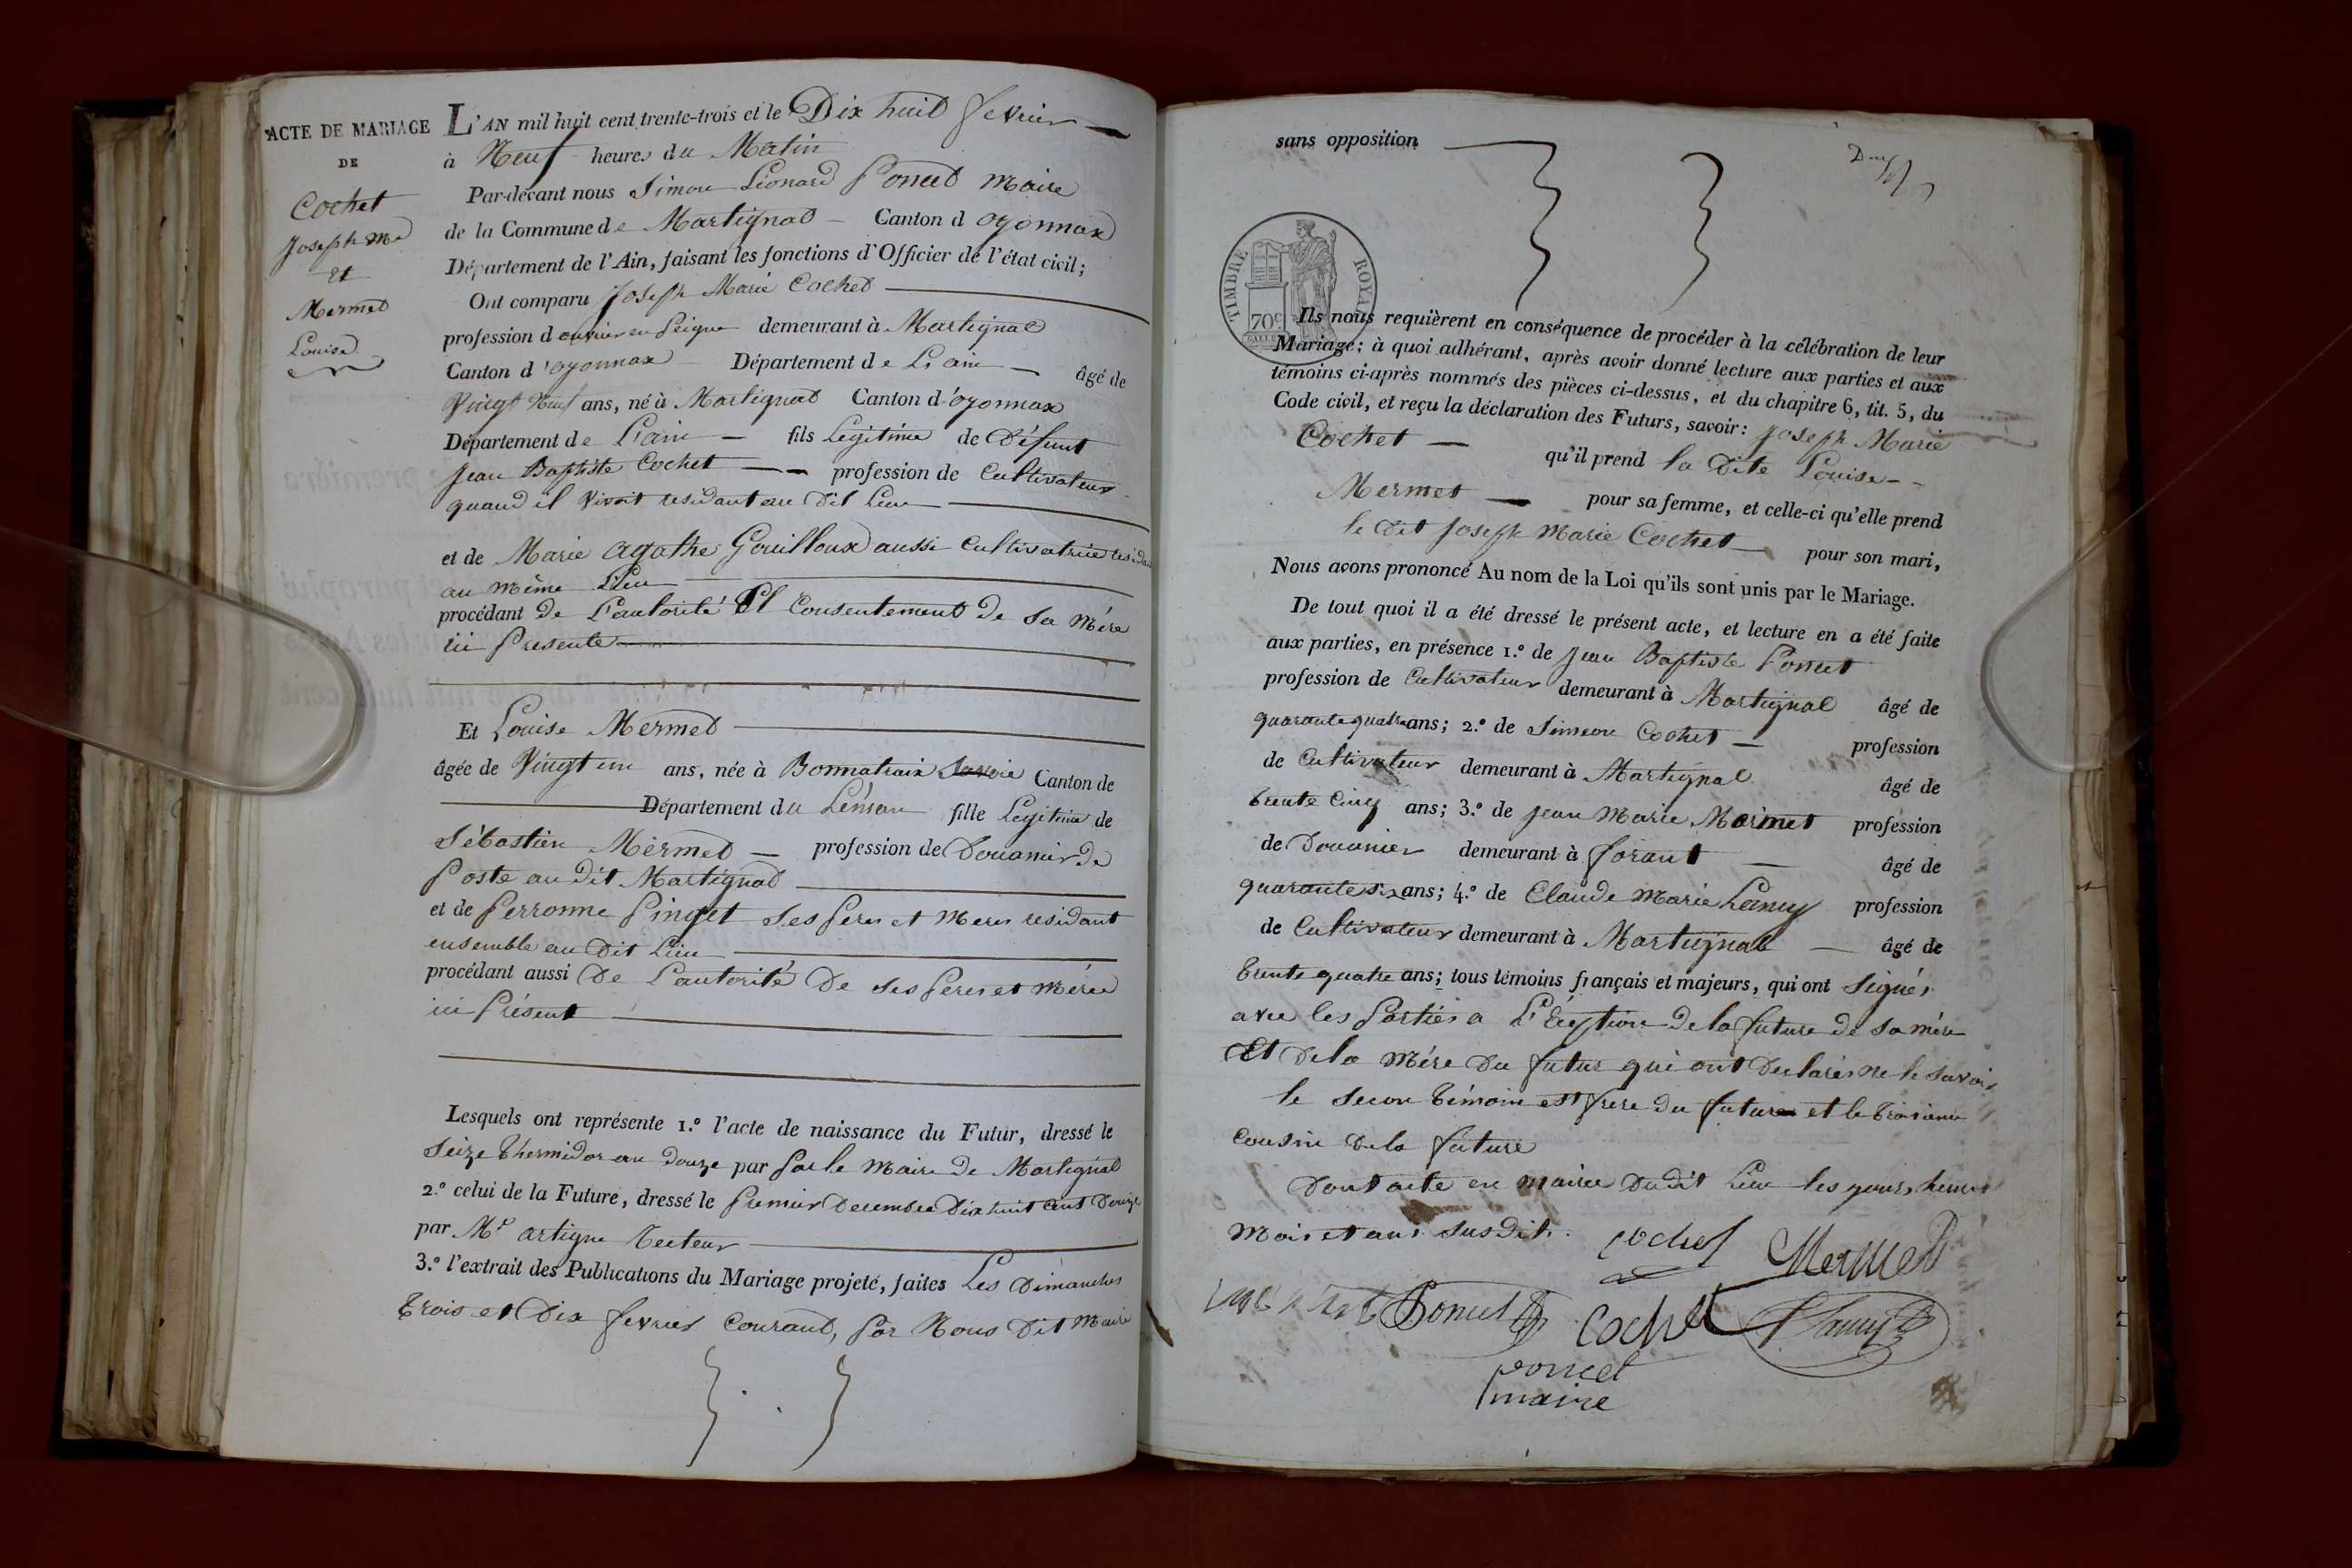 ACTE DE MARIAGE
DE
Cochet
Joseph Me
Et
Mermet
Louise
L'AN mil huit cent trente-trois et le Dix huit fevrier
à Neuf heures du Matin
Par-devant nous Simon Léonard Poncet Maire
de la Commune de Martignat Canton d oyonnax
Département de l'Ain, faisant les fonctions d'Officier de l'état civil;
Ont comparu Joseph Marie Cochet
profession d ouvrier en Peigne demeurant à Martignat
Canton d'oyonnax Département de L'ain âgé de
Vingt Neuf ans, né à Martignat Canton d'óyonnax
Département de L'ain fils Légitime de Défunt
Jean Baptiste Cochet profession de Cultivateur
quand il Vivoit residant au Dit Lieu
et de Marie Agathe Gouilloux aussi Cultivatrice
au même Lieu
procédant de L'autorité Et Consentement De Sa Mère
ici Presente
Et Louise Mermet
âgée de Vingt un ans, née à Bonnatraix Savoie Canton de
Département du Léman fille Legitime de
Sébastien Mermet profession de Douanier de
Poste au dit Martignat
et de Perronne Pinget Ses Peres et Meres residant
ensemble au Dit Lieu
procédant aussi De L'autorité De Ses Peres et Mères
ici Présent
Lesquels ont représente 1.º l'acte de naissance du Futur, dressé le
Seize Thermidor an Douze par Par le Maire de Martignat
2.º celui de la Future, dressé le Premier Decembre Dix huit Cent Douze
par Mr artigue Recteur
3.º l'extrait des Publications du Mariage projeté, faites Les Dimanches
Trois et Dix fevrier Courant, Par Nous Dit Maire
sans opposition
TIMBRE ROYAL
70c
Ils nous requièrent en conséquence de procéder à la célébration de leur
Mariage; à quoi adhérant, après avoir donné lecture aux parties et aux
témoins ci-après nommés des pièces ci-dessus, et du chapitre 6, tit. 5, du
Code civil, et reçu la déclaration des Futurs, savoir: Joseph Marie
Cochet qu'il prend la Dite Louise
Mermet pour sa femme, et celle-ci qu'elle prend
le Dit Joseph Marie Cochet pour son mari,
Nous avons prononcé Au nom de la Loi qu'ils sont unis par le Mariage.
De tout quoi il a été dressé le présent acte, et lecture en a été faite
aux parties, en présence 1.º de Jean Baptiste Poncet
profession de Cultivateur demeurant à Martignat âgé de
quarante quatre ans; 2.º de Simeon Cochet profession
de Cultivateur demeurant à Martignat âgé de
trente Cinq ans; 3.º de Jean Marie Mermet profession
de Douanier demeurant à forant âgé de
quarante six ans; 4.º de Claude Marie Lamy profession
de Cultivateur demeurant à Martignat âgé de
trente quatre ans; tous témoins français et majeurs, qui ont Signés
avec les Parties a L'Exeption De la future de Sa mère
Et De la Mére Du futur qui ont Declarés Ne le Savoir
le Secon témoin est frere du futur et le Troisieme
Cousin De la future
Dont acte en mairie Dudit Lieu les jours, heures
Mois et ans Susdits.
Cochet Mermet
Poncet Cochet Lamy
poncet
maire